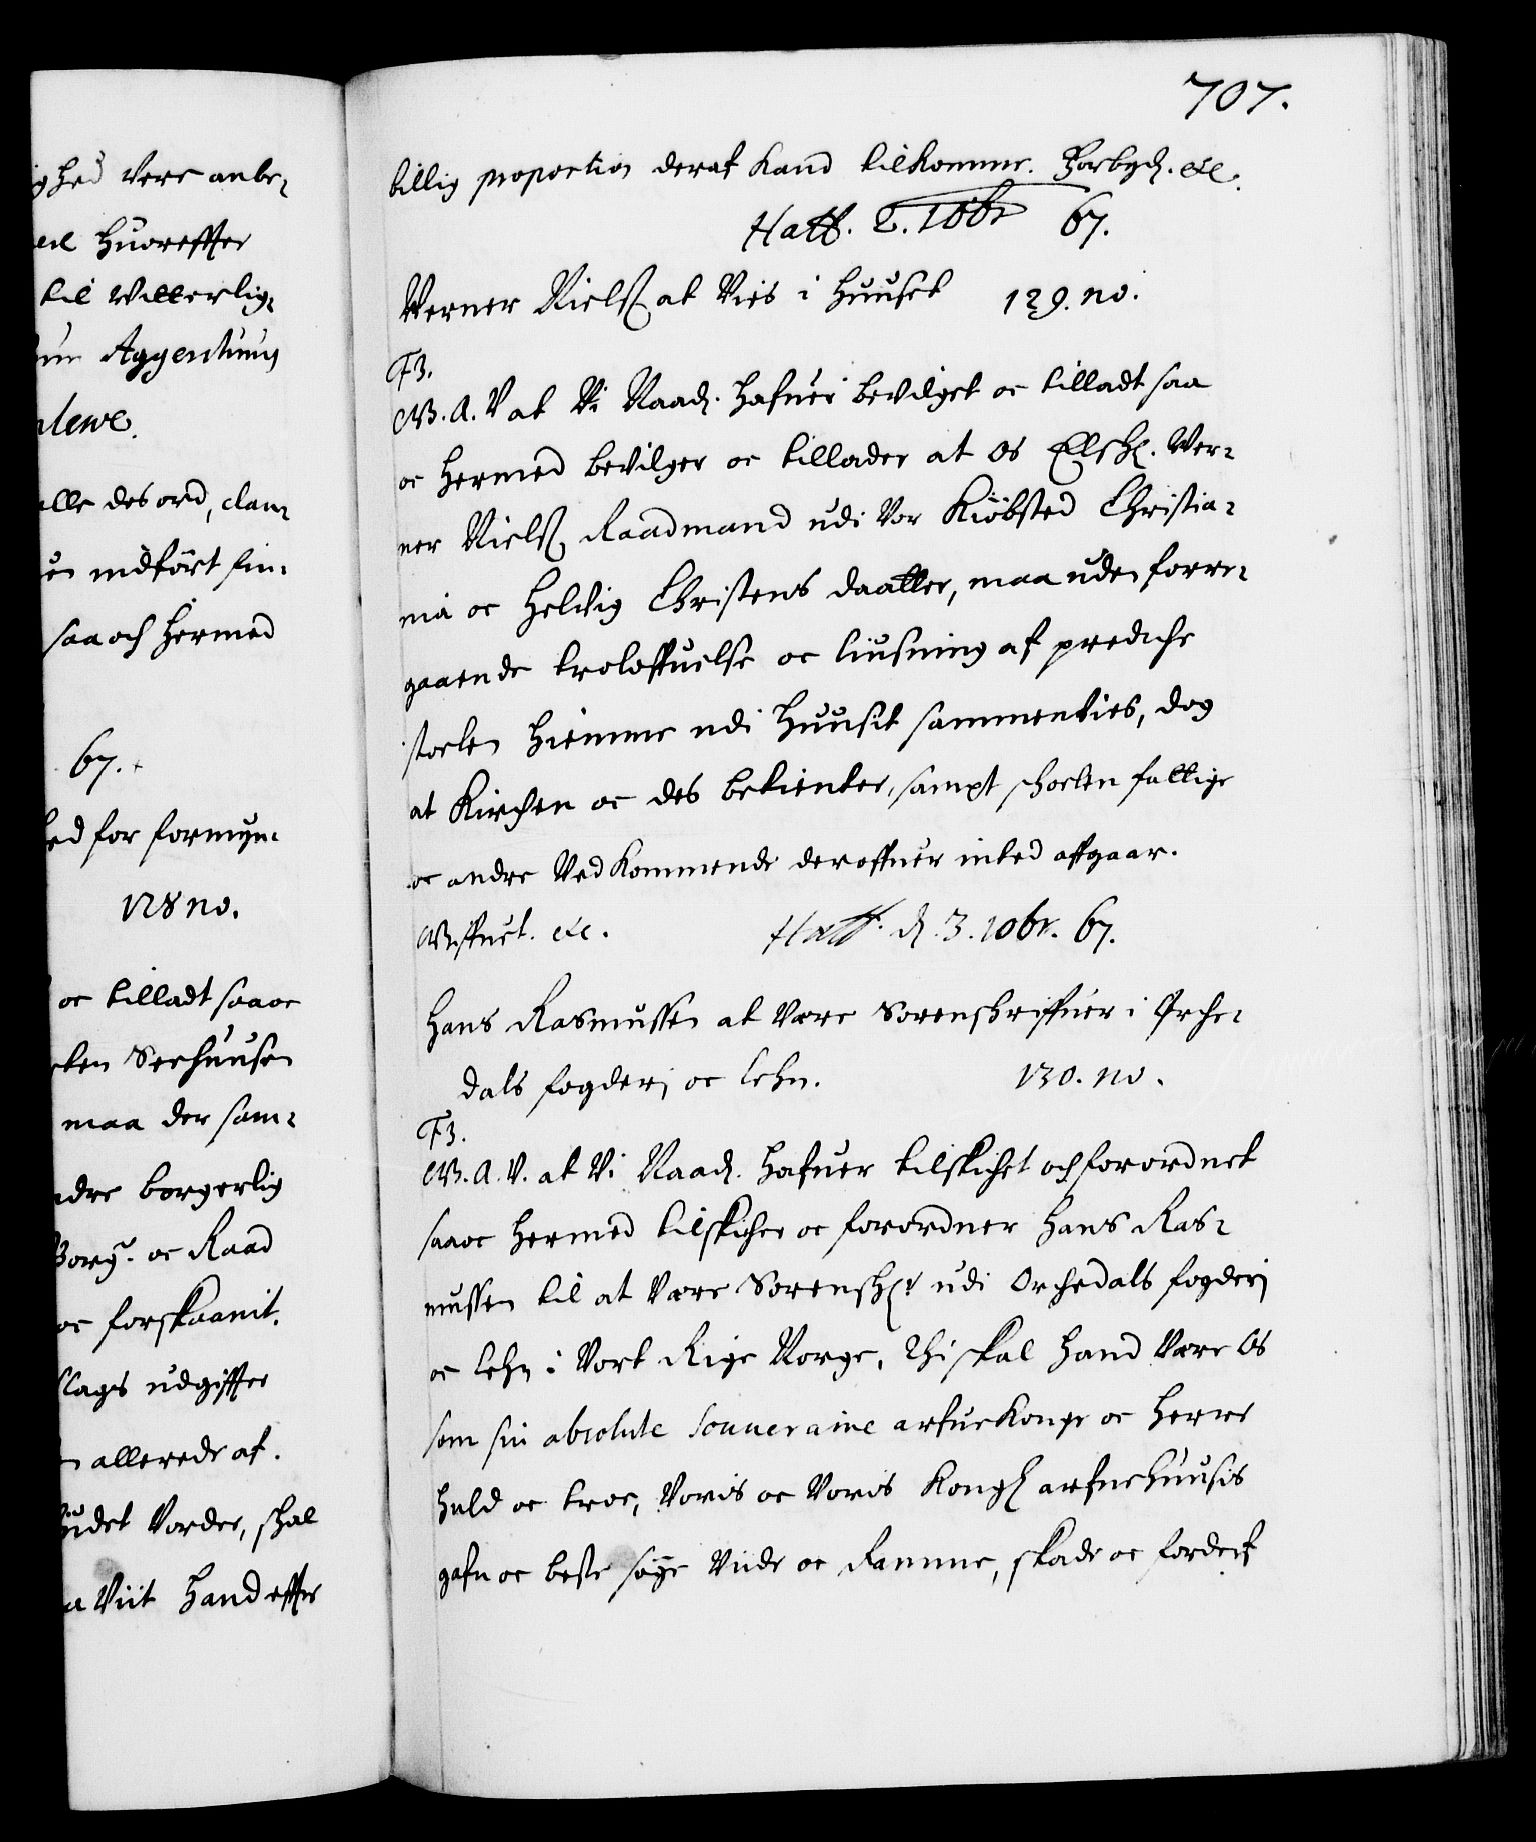 707.
billig proportion deraf kand tilkomme. Forbyd. etc.
Haff. 2. 10br 67.
Werner Nielsß at Vies i huuset 129. no.
F3.
G. A. V at Vi Naad. hafuer bevilget oc tilladt saa
oc hermed bevilger oc tillader at os Elschl. Wer-
ner Nielsß Raadmand udi Vor Kiöbsted Christia-
nia oc Helvig Christens daatter, maa uden forre-
gaaende troloffuelse oc liusning af prediche
stoelen hiemme udi huusit sammenvies, dog
at Kirchen oc des betienter, sampt schoelen fattige
oc andre Vedkommende deroffuer inted affgaar.
Giffuet. etc. Haff. d. 3. 10br. 67.
Hans Rasmussen at være Sorenschriffuer i Orche-
dals fogderj oc lehn. 130. no.
F3.
G. A. V. at Vi Naad. hafuer tilskichet och forordnet
saa oc hermed tilskicher oc forordner Hans Ras-
mussen til at være Sorenschr udi Orchedals fogderj
oc lehn i Vort Rige Norge, Thi skal hand være os
som sin absolute souveraine arfue Konge oc Herre
huld oc troe, Voris oc Voris Kongl arfuehuusis
gafn oc beste søge Viide oc Ramme, skade oc forderf
ighed vere anbe-
huoreffter
til Witterlig-
Aggershuus
alle des ord, clau-
indført fin-
saa och hermed
67.
for formyn-
128 no.
oc tilladt saa oc
Seehuusen
maa der sam-
borgerlig
Borg. oc Raad
oc forskaanit.
slags udgiffter
allerede af.
budet Vorder, schal
Viit hand effter